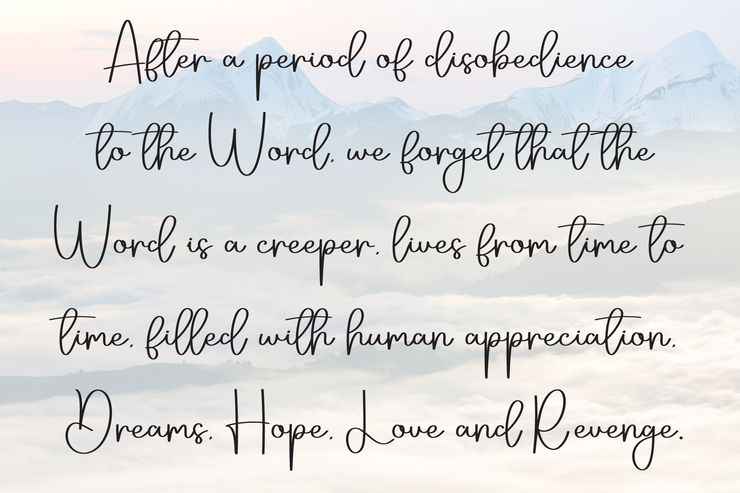 After a period of disobedience
to the Word, we forget that the
Word is a creeper, lives from time to
time, filled with human appreciation,
Dreams, Hope, Love and Revenge.